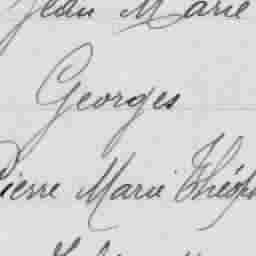 Jean Marie
Georges
Pierre Marie Théoph